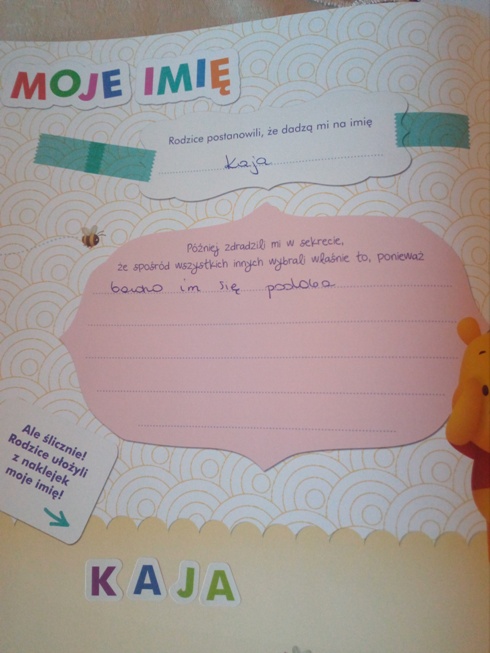 MOJE IMIĘ
Rodzice postanowili, że dadzą mi na imię
Kaja
Później zdradzili mi w sekrecie,
że spośród wszystkich innych wybrali właśnie to, ponieważ
bardzo im się podoba
Ale ślicznie!
Rodzice ułożyli
z naklejek
moje imię!
KAJA